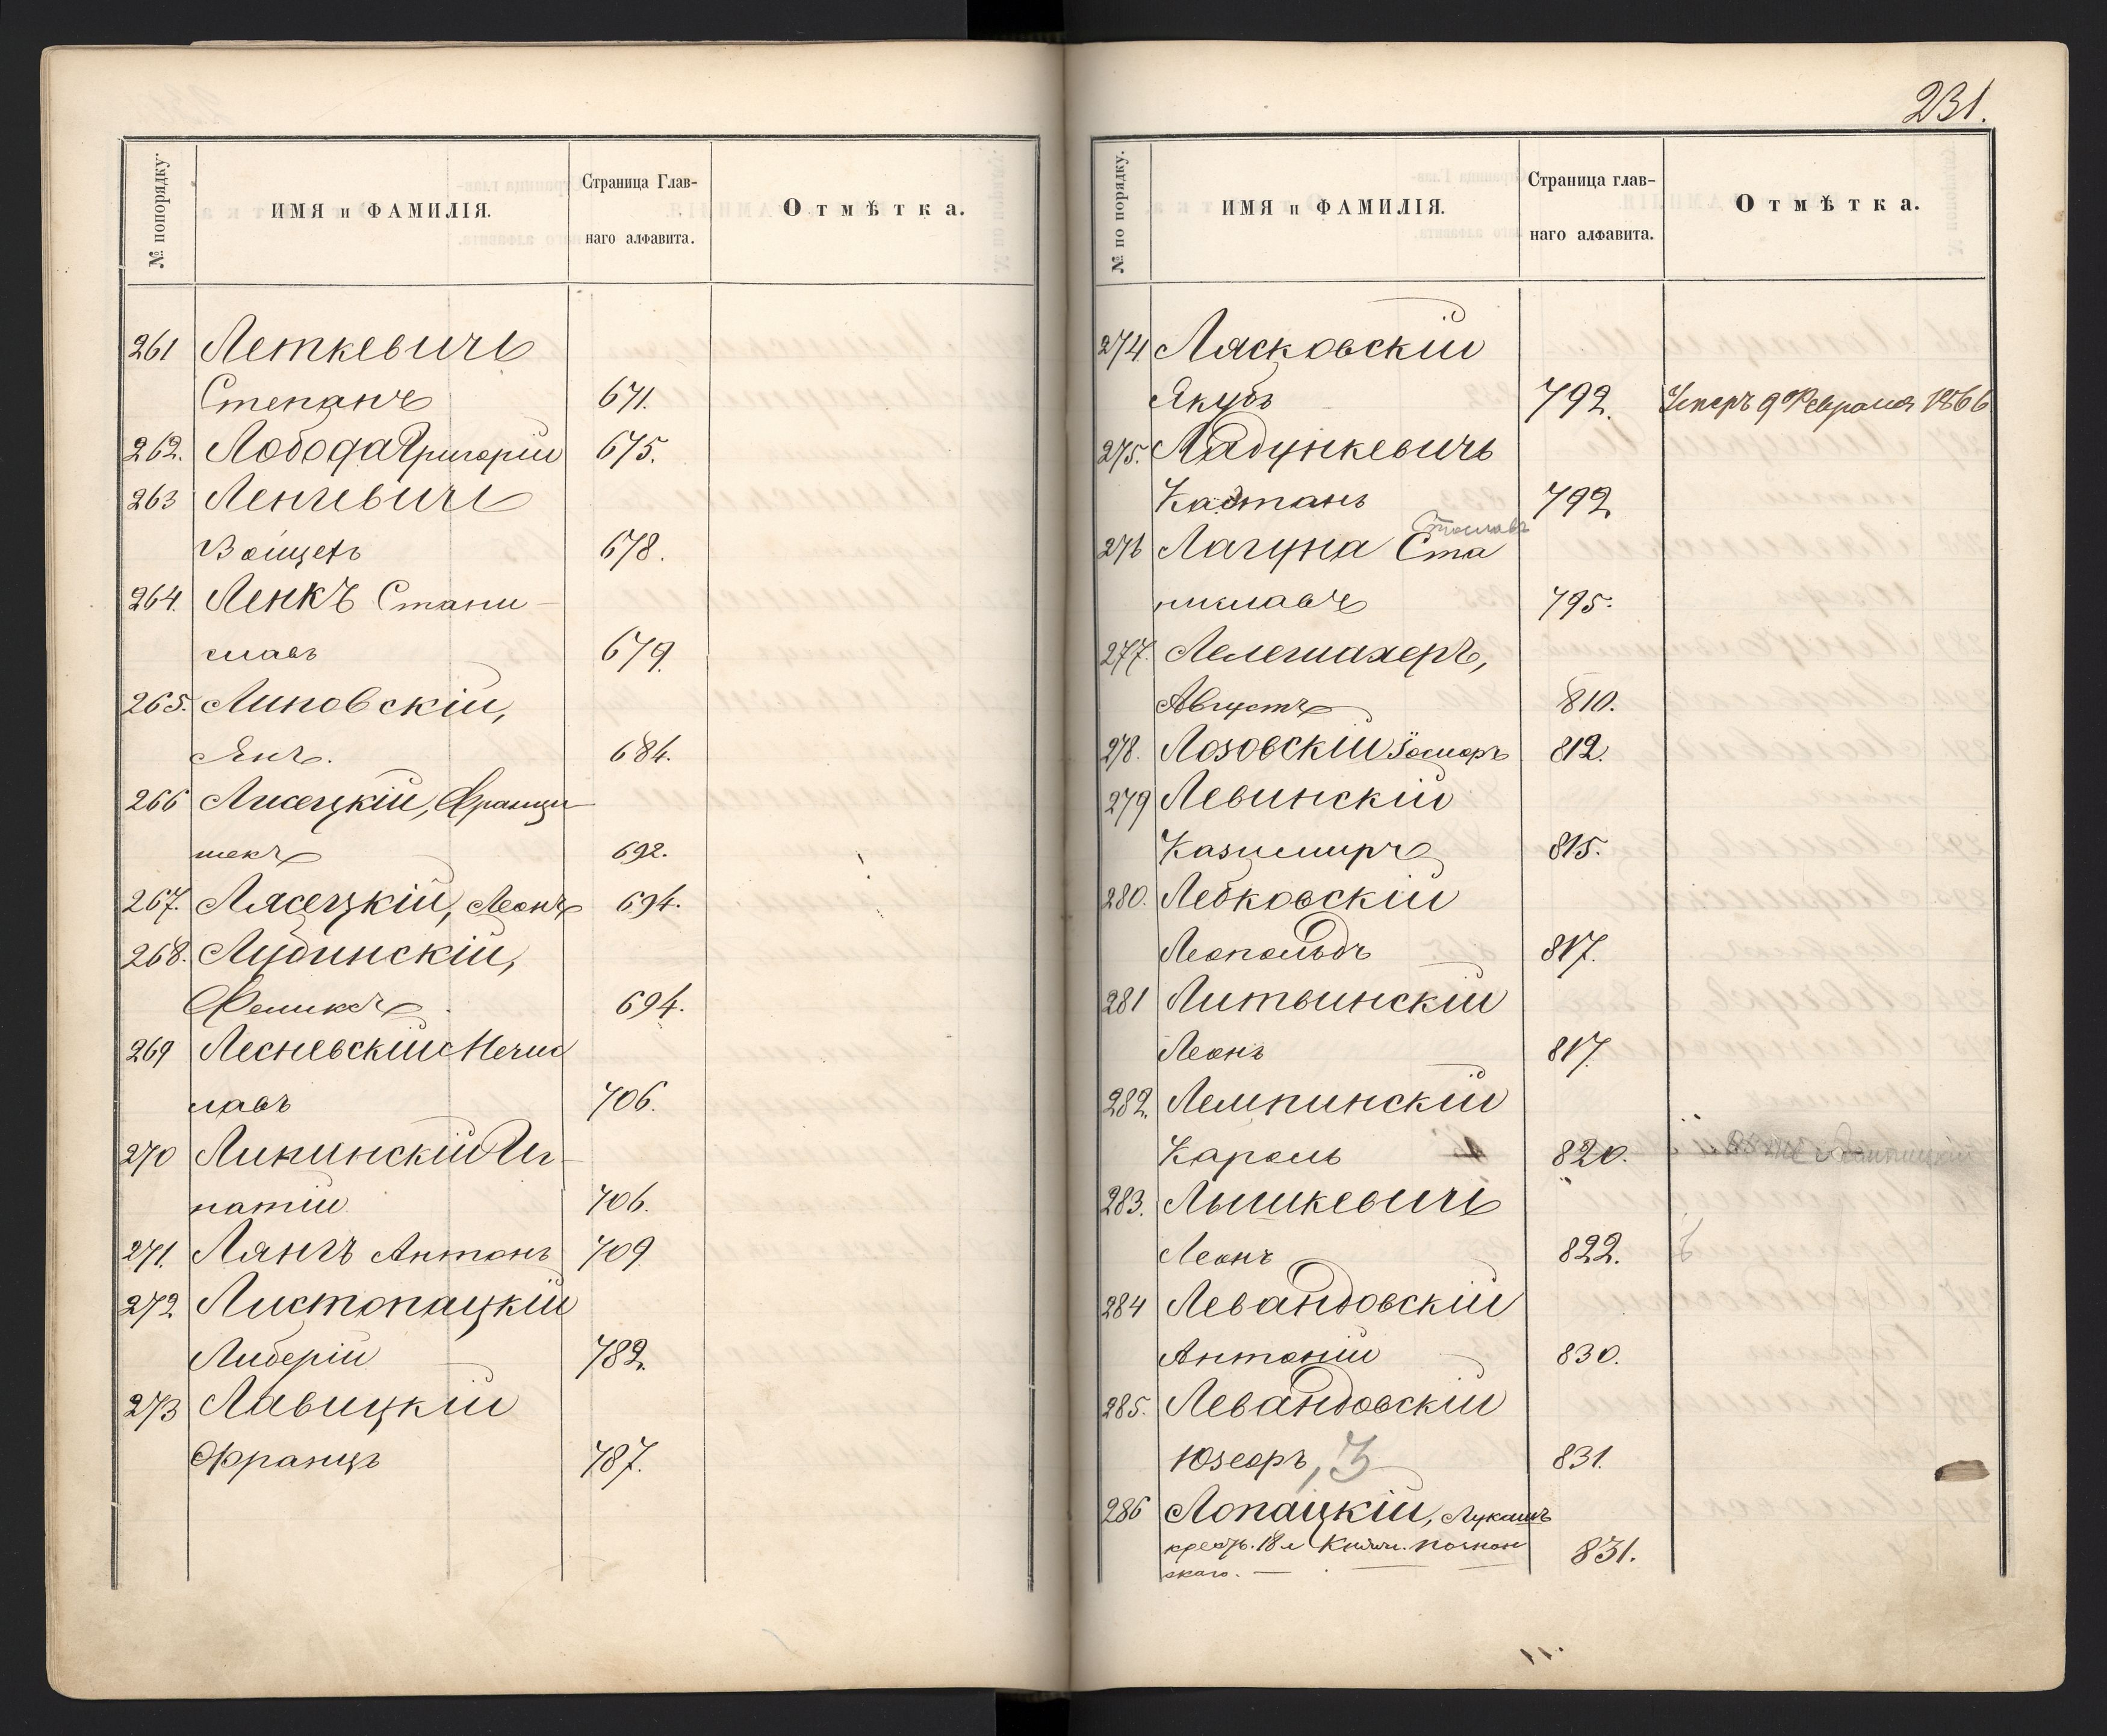 № попорядку.
ИМЯ и ФАМИЛІЯ.
Страница Глав-
наго алфавита.
Отмѣтка.
261 Леткевичъ
Степанъ 671.
262. Лобода Григорій 675.
263 Ленчевичъ
Войцехъ 678.
264. Ленкъ Стани-
славъ 679.
265. Липовскій,
Янъ. 684.
266 Лисецкій, Франци-
шекъ 692.
267. Лясецкій, Леонъ 694.
268. Лубинскій,
Феликсъ 694.
269 Лесневскій Мечис
лавъ 706.
270 Липинскій Иг-
натій 706.
271. Лянгъ Антонъ 709
272 Листопацкій
Либерій 782.
273 Лавицкій
Францъ 787.
231.
№ по порядку.
ИМЯ и ФАМИЛІЯ.
Страница глав-
наго алфавита.
Отмѣтка.
274 Лясковскій
Якубъ 792. Умеръ 9 Февраля 1866
275. Ладункевичъ
Каэтанъ 792.
276 Лагуна Ста
ниславъ 795.
277. Лелешахеръ,
Августъ 810.
278. Лозовскій Іосифъ 812.
279 Левинскій
Казимиръ 815.
280. Лебковскій
Леопольдъ 817.
281 Литвинскій
Леонъ 817.
282. Лемпинскій
Кароль 820.
283. Лышкевичъ
Леонъ 822.
284 Левандовскій
Антоній 830.
285. Левандовскій
Юзефъ, 3 831.
286 Лопацкій, Лукашъ
крест. 18 л Княж. Познан
скаго. 831.